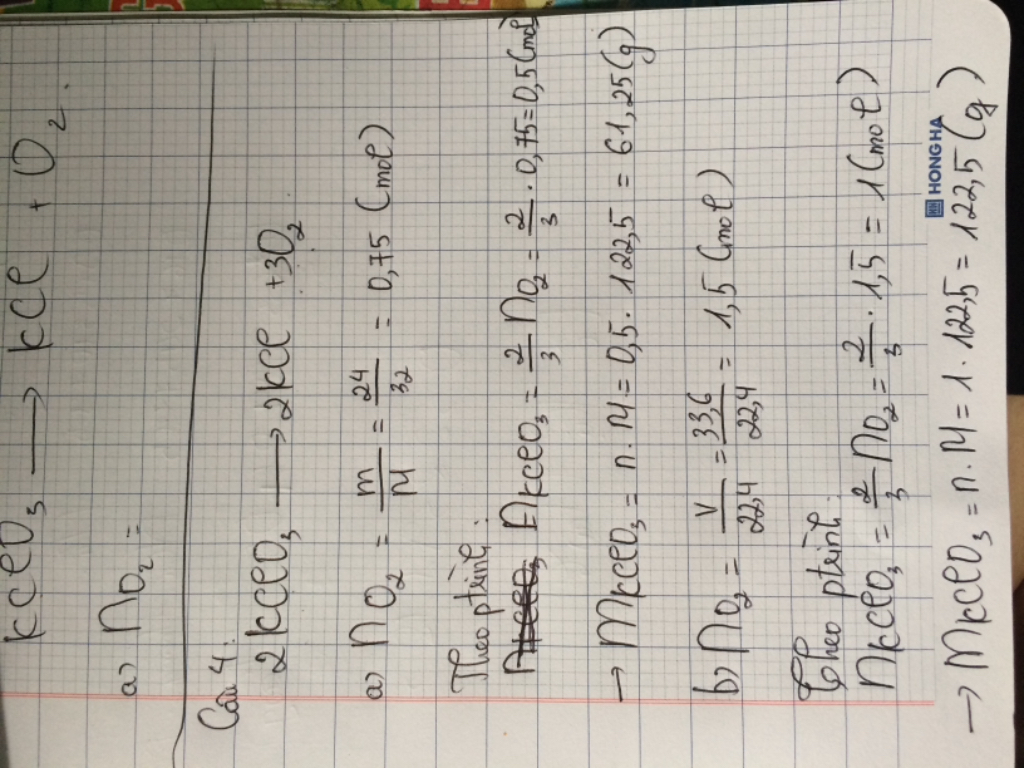 KClO₃ ⟶ KCl + O₂.
a) nO₂ =
Câu 4:
2KClO₃ ⟶ 2KCl + 3O₂
a) nO₂ = m/M = 24/32 = 0,75 (mol)
Theo ptrình:
nKClO₃ = 2/3 nO₂ = 2/3 . 0,75 = 0,5 (mol)
→ mKClO₃ = n.M = 0,5 . 122,5 = 61,25 (g)
b) nO₂ = V/22,4 = 33,6/22,4 = 1,5 (mol)
Theo ptrình:
nKClO₃ = 2/3 nO₂ = 2/3 . 1,5 = 1 (mol)
HONG HA
→ mKClO₃ = n.M = 1 . 122,5 = 122,5 (g)